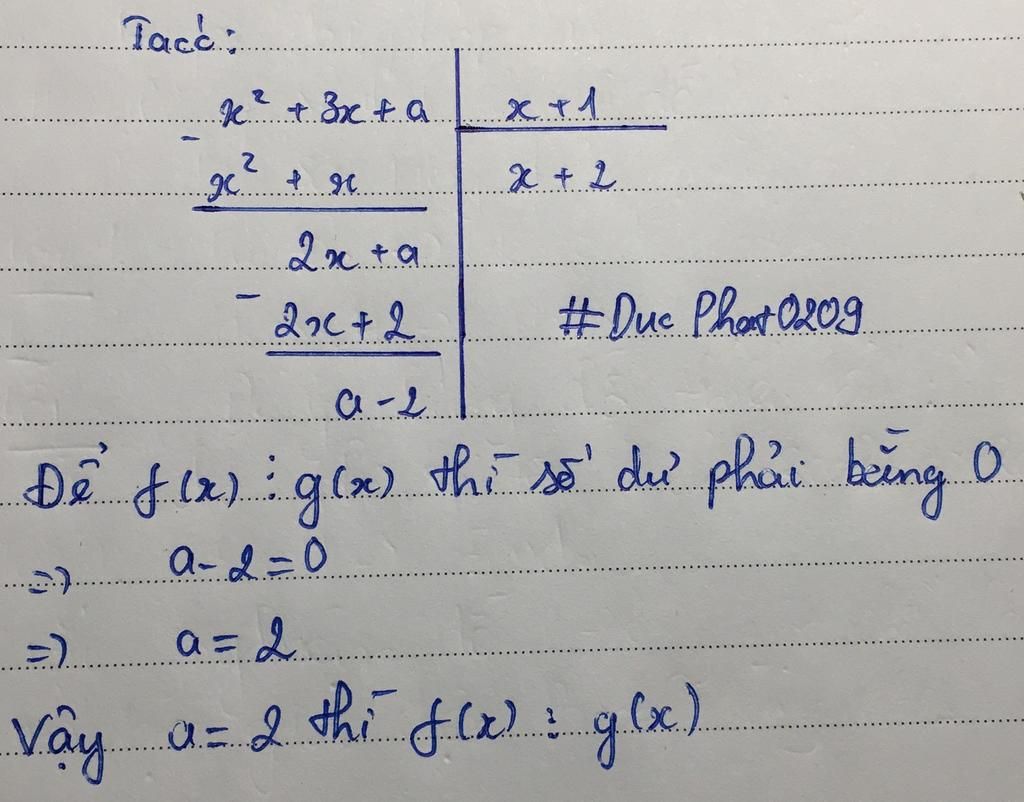 Ta có:
x² + 3x + a | x + 1
- x² + x | x + 2
2x + a
- 2x + 2
#Duc Phat0209
a - 2
Để f(x) ⋮ g(x) thì số dư phải bằng 0
=> a - 2 = 0
=> a = 2
Vậy a = 2 thì f(x) ⋮ g(x)